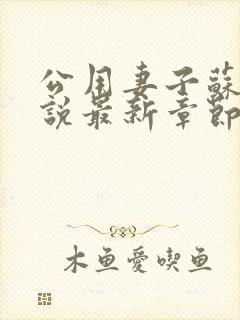 公用妻子蘇
說最新章節
木鱼愛喫鱼